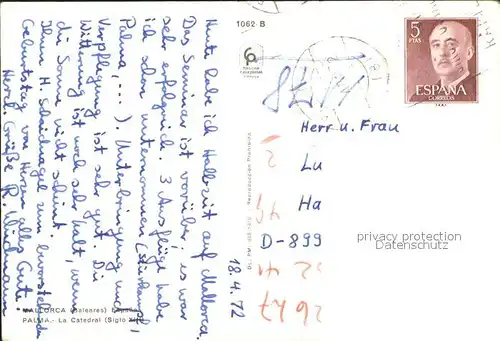 1062-B
Heute habe ich Halbzeit auf Mallorca.
Das Seminar ist vorüber, es war
sehr erfolgreich. 3 Ausflüge habe
ich schon unternommen (Stierkampf,
Palma, ...). Unterbringung und
Verpflegung ist sehr gut. Die
Witterung ist noch sehr kalt, wenn
die Sonne nicht scheint.
Ihnen H. zum bevorstehenden
Geburtstag von Herzen alles Gute.
Herzl. Grüße R. Wiedmann
18.4.72
MALLORCA (Baleares) España
PALMA.- La Catedral (Siglo
Reproducción Prohibida
5
PTAS
ESPAÑA
CORREOS
Herr u. Frau
Lu
Ha
D-899
privacy protection
Datenschutz